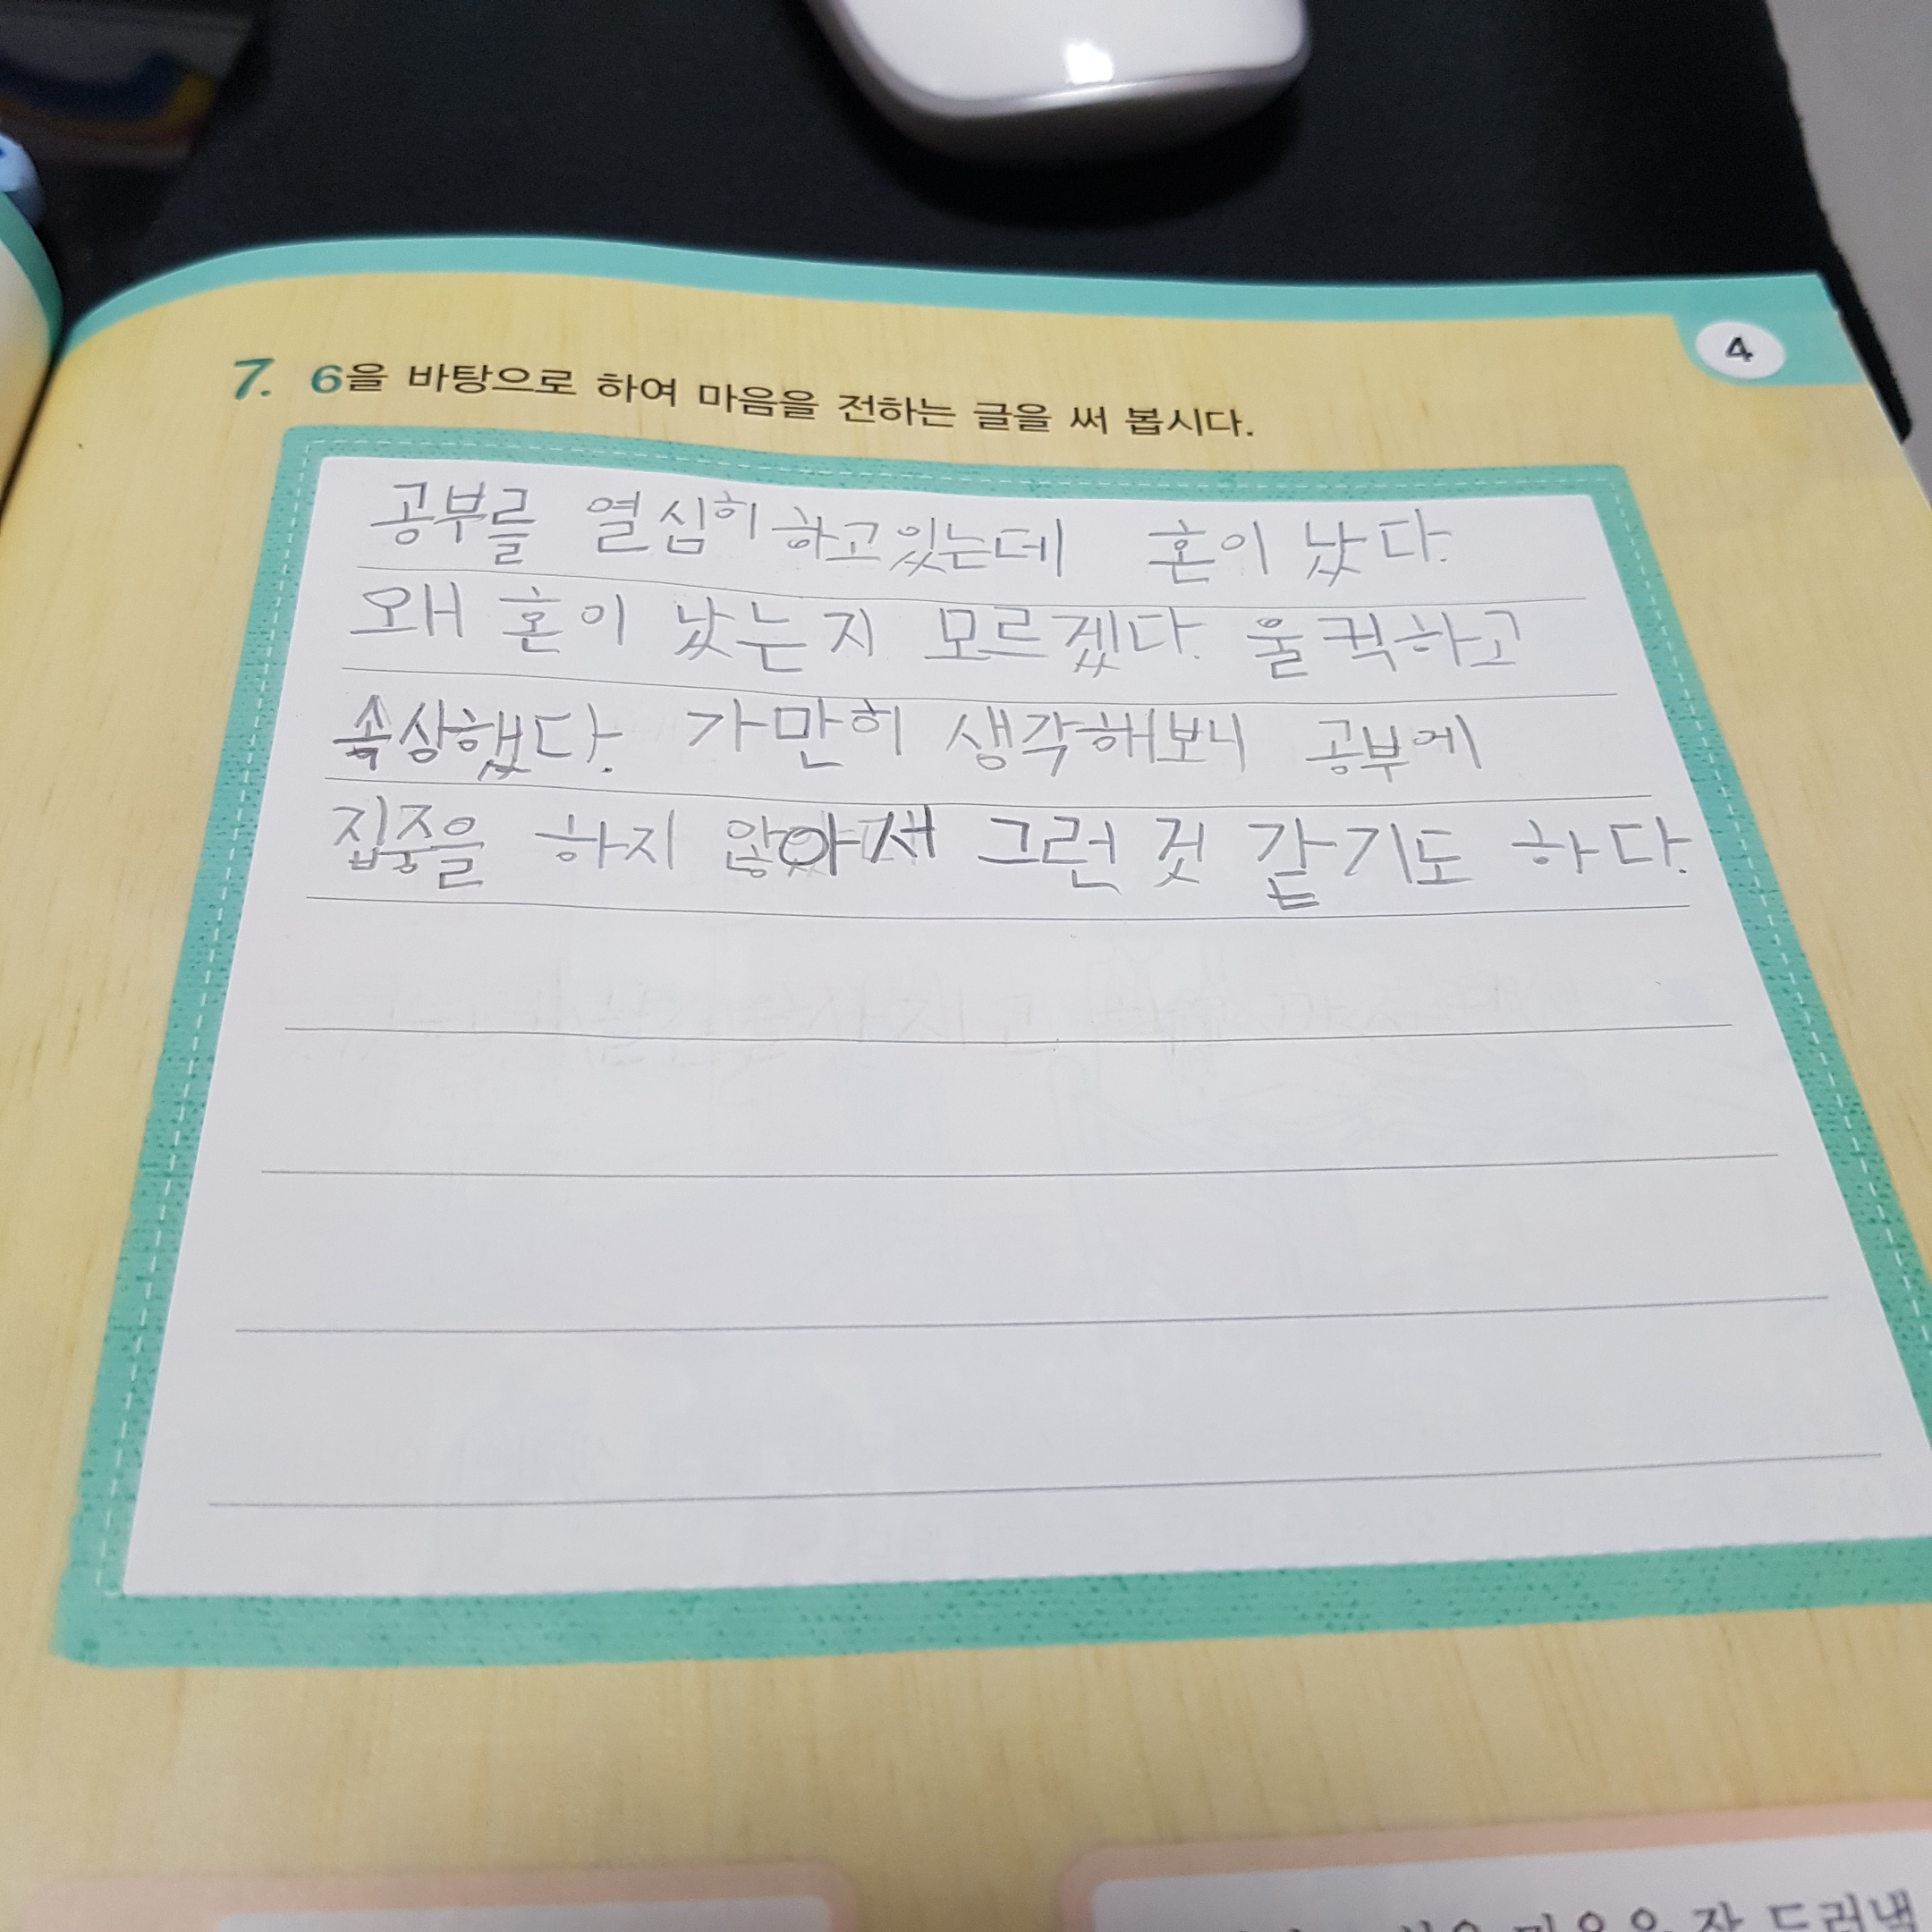 4
7. 6을 바탕으로 하여 마음을 전하는 글을 써 봅시다.
공부를 열심히 하고있는데 혼이 났다.
왜 혼이 났는지 모르겠다. 울컥하고
속상했다. 가만히 생각해보니 공부에
집중을 하지 않아서 그런 것 같기도 하다.
잘 드러낼